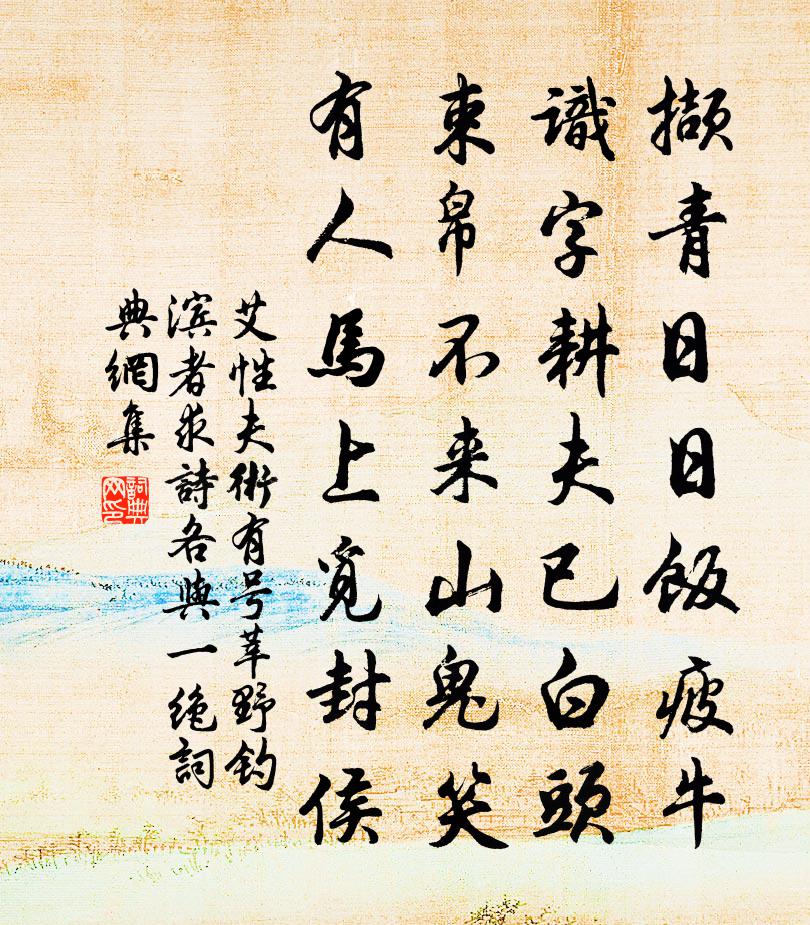 擷青日日飯疲牛
識字耕夫已白頭
束帛不来山鬼笑
有人馬上覓封侯
艾性夫術有号莘野钓
滨者求詩各與一絶詞
典網集
詞典网印